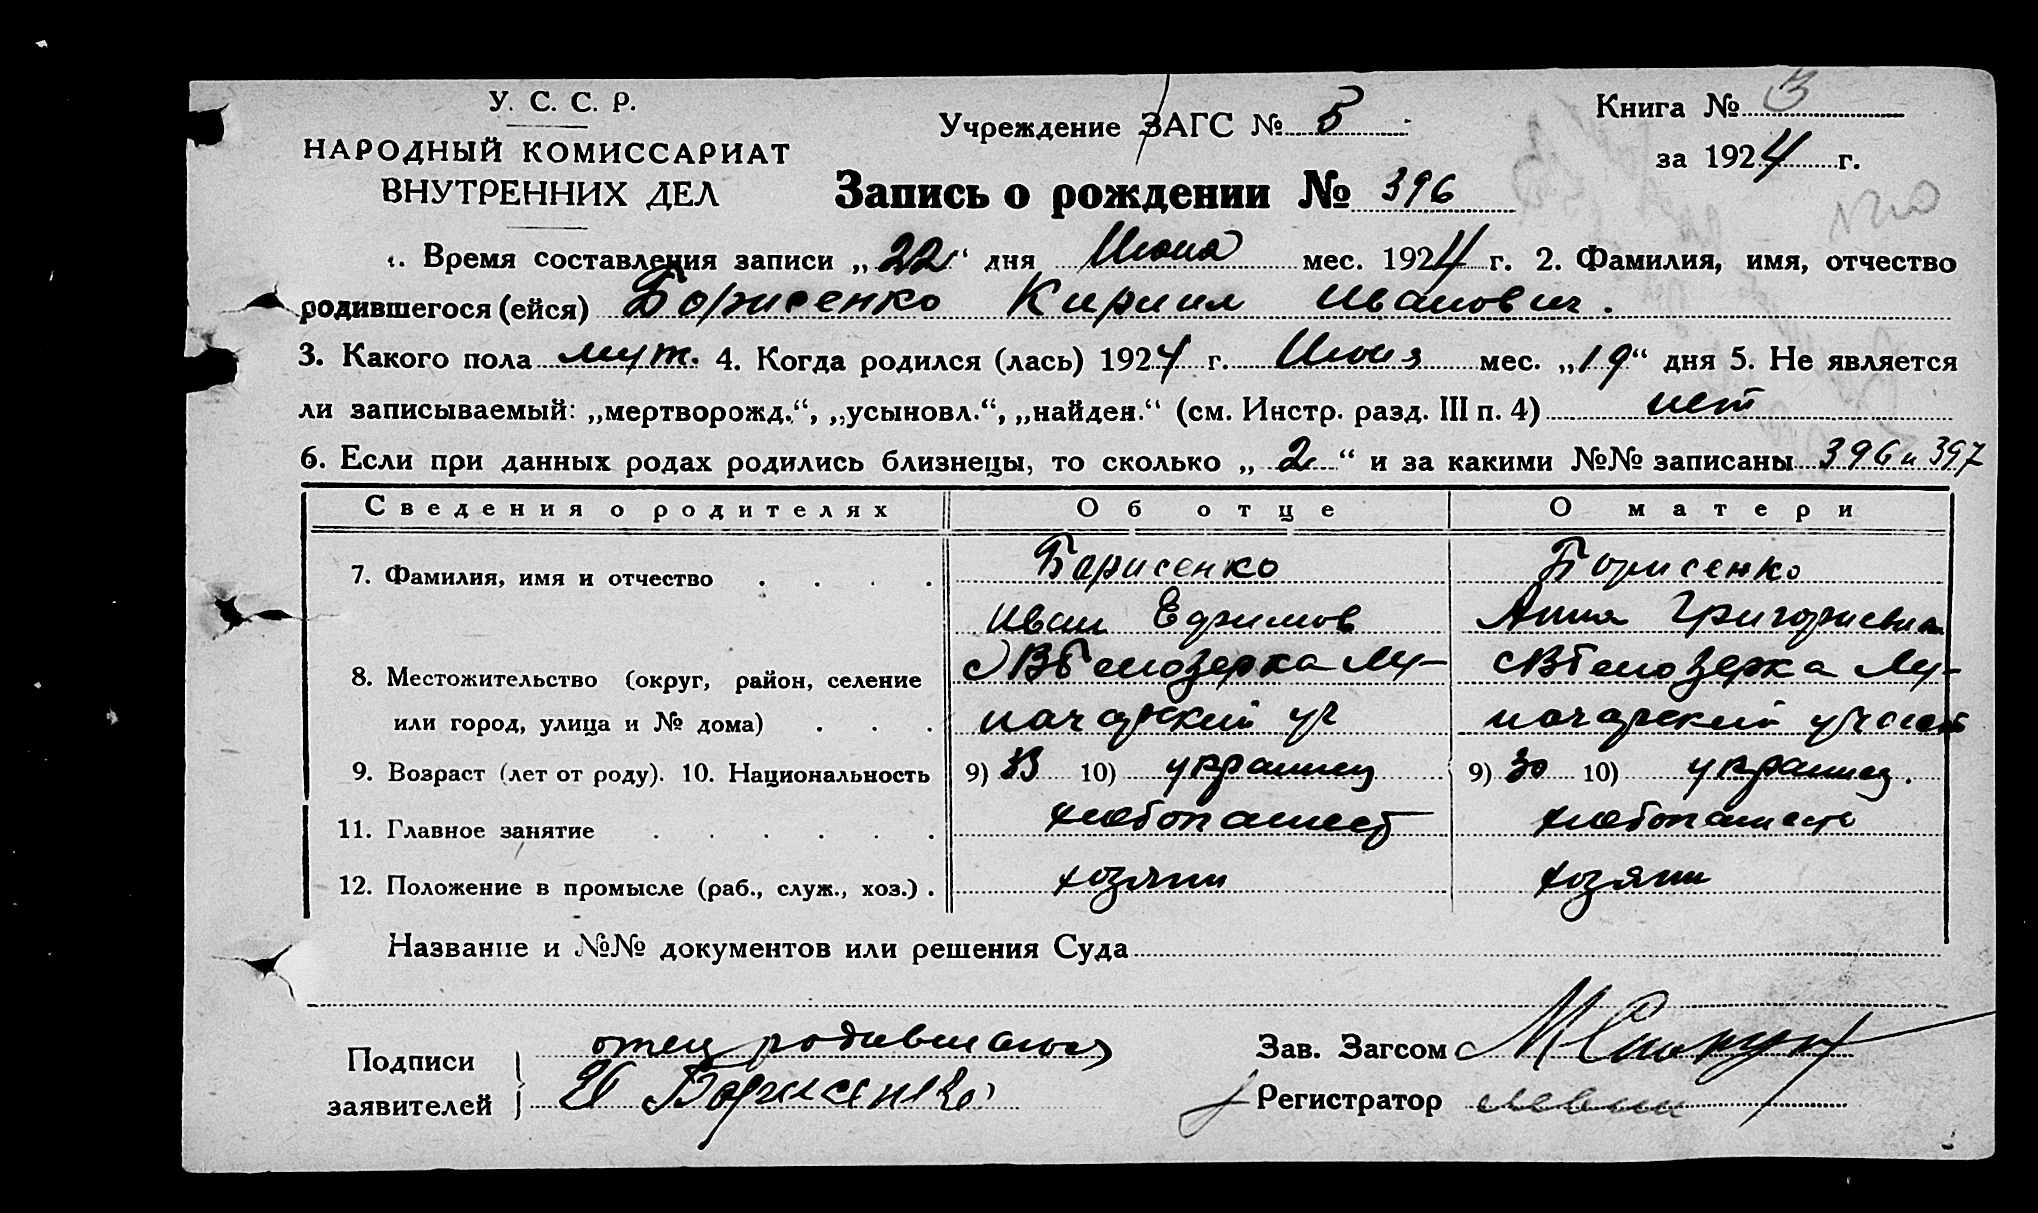 У. С. С. Р.
НАРОДНЫЙ КОМИССАРИАТ
ВНУТРЕННИХ ДЕЛ
Учреждение ЗАГС № 5
Книга № 3
за 1924 г.
Запись о рождении № 396
1. Время составления записи „22“ дня Июня мес. 1924 г. 2. Фамилия, имя, отчество
родившегося (ейся) Борисенко Кирилл Иванович.
3. Какого пола муж. 4. Когда родился (лась) 1924 г. Июня мес. „19“ дня 5. Не является
ли записываемый: „мертворожд.“, „усыновл.“, „найден.“ (см. Инстр. разд. III п. 4) нет
6. Если при данных родах родились близнецы, то сколько „2“ и за какими №№ записаны 396 и 397
Сведения о родителях Об отце О матери
7. Фамилия, имя и отчество . . . . Борисенко Борисенко
Иван Ефимов Анна Григориевна
8. Местожительство (округ, район, селение с В Белозерка Лу- с В Белозерка Лу-
или город, улица и № дома) . . . начарский уч начарский участ
9. Возраст (лет от роду). 10. Национальность 9) 33 10) украинец 9) 30 10) украинец.
11. Главное занятие . . . . . . хлебопашест хлебопашест
12. Положение в промысле (раб., служ., хоз.) . хозяин хозяин
Название и №№ документов или решения Суда
Подписи
заявителей
отец родившагося
И Борисенко
Зав. Загсом
Регистратор